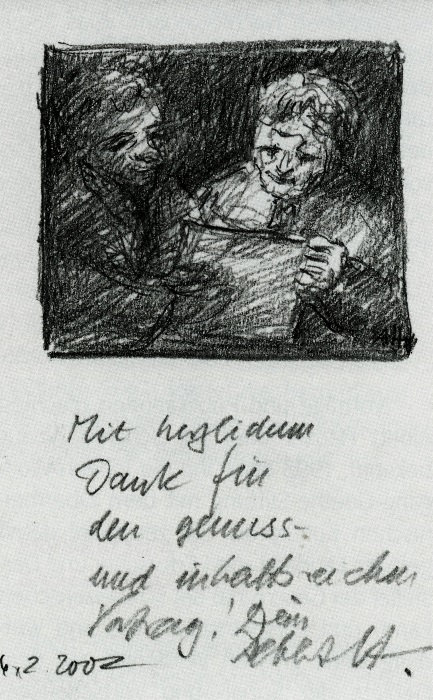 Mit herzlichem
Dank für
den genuss-
und inhaltsreichen
Vortrag! Dein
.2.2002